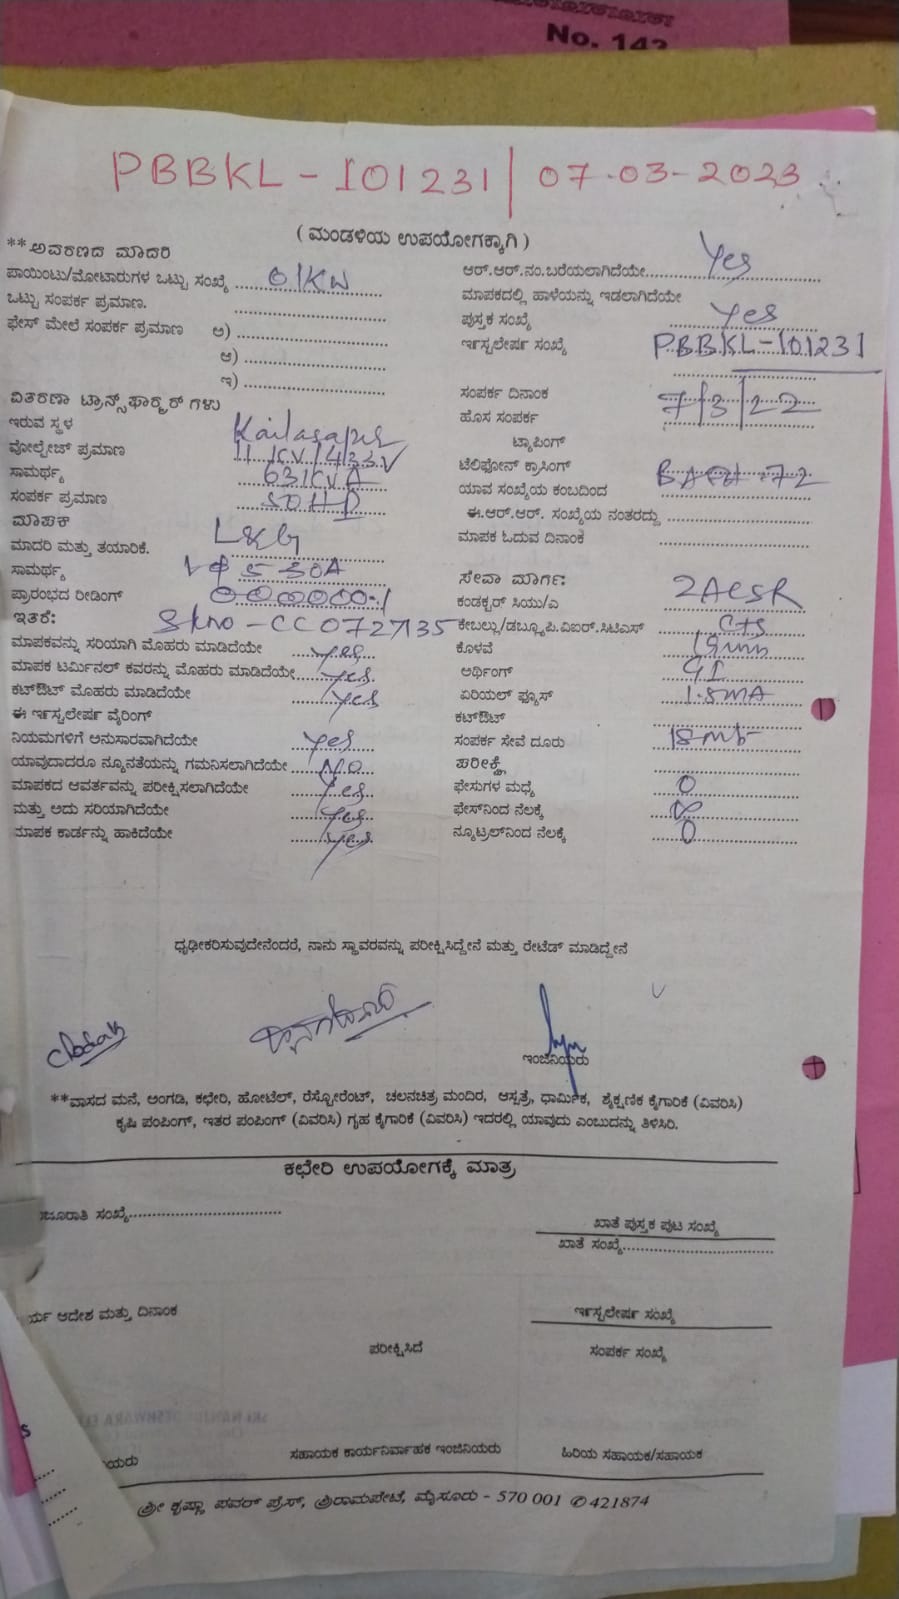 No. 142
PBBKL - 101231 | 07-03-2023
( ಮಂಡಳಿಯ ಉಪಯೋಗಕ್ಕಾಗಿ )
**ಅವರಣದ ಮಾದರಿ
ಪಾಯಿಂಟು/ಮೋಟಾರುಗಳ ಒಟ್ಟು ಸಂಖ್ಯೆ 01KW
ಒಟ್ಟು ಸಂಪರ್ಕ ಪ್ರಮಾಣ.
ಫೇಸ್ ಮೇಲೆ ಸಂಪರ್ಕ ಪ್ರಮಾಣ ಅ)
ಆ)
ಇ)
ವಿತರಣಾ ಟ್ರಾನ್ಸ್‌ಫಾರ್ಮರ್ ಗಳು
ಇರುವ ಸ್ಥಳ Kailasapur
ವೋಲ್ಟೇಜ್ ಪ್ರಮಾಣ 11KV/433V
ಸಾಮರ್ಥ್ಯ 63KVA
ಸಂಪರ್ಕ ಪ್ರಮಾಣ 50HP
ಮಾಪಕ
ಮಾದರಿ ಮತ್ತು ತಯಾರಿಕೆ. L&G
ಸಾಮರ್ಥ್ಯ 1φ 5-30A
ಪ್ರಾರಂಭದ ರೀಡಿಂಗ್ 000000.1
ಇತರೆ: Slno - CC0727135
ಮಾಪಕವನ್ನು ಸರಿಯಾಗಿ ಮೊಹರು ಮಾಡಿದೆಯೇ yes
ಮಾಪಕ ಟರ್ಮಿನಲ್ ಕವರನ್ನು ಮೊಹರು ಮಾಡಿದೆಯೇ yes
ಕಟ್‌ಔಟ್ ಮೊಹರು ಮಾಡಿದೆಯೇ yes
ಈ ಇನ್‌ಸ್ಟಲೇಷನ್ ವೈರಿಂಗ್
ನಿಯಮಗಳಿಗೆ ಅನುಸಾರವಾಗಿದೆಯೇ yes
ಯಾವುದಾದರೂ ನ್ಯೂನತೆಯನ್ನು ಗಮನಿಸಲಾಗಿದೆಯೇ NO
ಮಾಪಕದ ಆವರ್ತವನ್ನು ಪರೀಕ್ಷಿಸಲಾಗಿದೆಯೇ yes
ಮತ್ತು ಅದು ಸರಿಯಾಗಿದೆಯೇ yes
ಮಾಪಕ ಕಾರ್ಡನ್ನು ಹಾಕಿದೆಯೇ yes
ಆರ್.ಆರ್.ನಂ.ಬರೆಯಲಾಗಿದೆಯೇ Yes
ಮಾಪಕದಲ್ಲಿ ಹಾಳೆಯನ್ನು ಇಡಲಾಗಿದೆಯೇ
ಪುಸ್ತಕ ಸಂಖ್ಯೆ Yes
ಇನ್‌ಸ್ಟಲೇಷನ್ ಸಂಖ್ಯೆ PBBKL-101231
ಸಂಪರ್ಕ ದಿನಾಂಕ 7/3/22
ಹೊಸ ಸಂಪರ್ಕ
ಟ್ಯಾಪಿಂಗ್
ಟೆಲಿಫೋನ್ ಕ್ರಾಸಿಂಗ್
ಯಾವ ಸಂಖ್ಯೆಯ ಕಂಬದಿಂದ
ಈ.ಆರ್.ಆರ್. ಸಂಖ್ಯೆಯ ನಂತರದ್ದು
ಮಾಪಕ ಓದುವ ದಿನಾಂಕ
ಸೇವಾ ಮಾರ್ಗ:
ಕಂಡಕ್ಟರ್ ಸಿಯು/ಎ 2ACSR
ಕೇಬಲ್ಲು/ಡಬ್ಲ್ಯೂ.ಪಿ.ವಿಐಆರ್.ಸಿಟಿಎಸ್ CTS
ಕೊಳವೆ 19mm
ಅರ್ಥಿಂಗ್ GI
ಏರಿಯಲ್ ಫ್ಯೂಸ್ 1.5MA
ಕಟ್‌ಔಟ್
ಸಂಪರ್ಕ ಸೇವೆ ದೂರು 18mt
ಪರೀಕ್ಷೆ
ಫೇಸುಗಳ ಮಧ್ಯೆ 0
ಫೇಸ್‌ನಿಂದ ನೆಲಕ್ಕೆ
ನ್ಯೂಟ್ರಲ್‌ನಿಂದ ನೆಲಕ್ಕೆ 0
ಧೃಢೀಕರಿಸುವುದೇನೆಂದರೆ, ನಾನು ಸ್ಥಾವರವನ್ನು ಪರೀಕ್ಷಿಸಿದ್ದೇನೆ ಮತ್ತು ರೇಟೆಡ್ ಮಾಡಿದ್ದೇನೆ
ಇಂಜಿನಿಯರು
**ವಾಸದ ಮನೆ, ಅಂಗಡಿ, ಕಛೇರಿ, ಹೋಟೆಲ್, ರೆಸ್ಟೋರೆಂಟ್, ಚಲನಚಿತ್ರ ಮಂದಿರ, ಆಸ್ಪತ್ರೆ, ಧಾರ್ಮಿಕ, ಶೈಕ್ಷಣಿಕ ಕೈಗಾರಿಕೆ (ವಿವರಿಸಿ)
ಕೃಷಿ ಪಂಪಿಂಗ್, ಇತರ ಪಂಪಿಂಗ್ (ವಿವರಿಸಿ) ಗೃಹ ಕೈಗಾರಿಕೆ (ವಿವರಿಸಿ) ಇದರಲ್ಲಿ ಯಾವುದು ಎಂಬುದನ್ನು ತಿಳಿಸಿರಿ.
ಕಛೇರಿ ಉಪಯೋಗಕ್ಕೆ ಮಾತ್ರ
ಜೂರಾತಿ ಸಂಖ್ಯೆ
ಖಾತೆ ಪುಸ್ತಕ ಪುಟ ಸಂಖ್ಯೆ
ಖಾತೆ ಸಂಖ್ಯೆ
ರ್ಯ ಆದೇಶ ಮತ್ತು ದಿನಾಂಕ
ಇನ್‌ಸ್ಟಲೇಷನ್ ಸಂಖ್ಯೆ
ಪರೀಕ್ಷಿಸಿದೆ
ಸಂಪರ್ಕ ಸಂಖ್ಯೆ
ಯರು
ಸಹಾಯಕ ಕಾರ್ಯನಿರ್ವಾಹಕ ಇಂಜಿನಿಯರು
ಹಿರಿಯ ಸಹಾಯಕ/ಸಹಾಯಕ
ಶ್ರೀ ಕೃಷ್ಣಾ ಪವರ್ ಪ್ರೆಸ್, ಶ್ರೀರಾಮಪೇಟೆ, ಮೈಸೂರು - 570 001 ✆ 421874